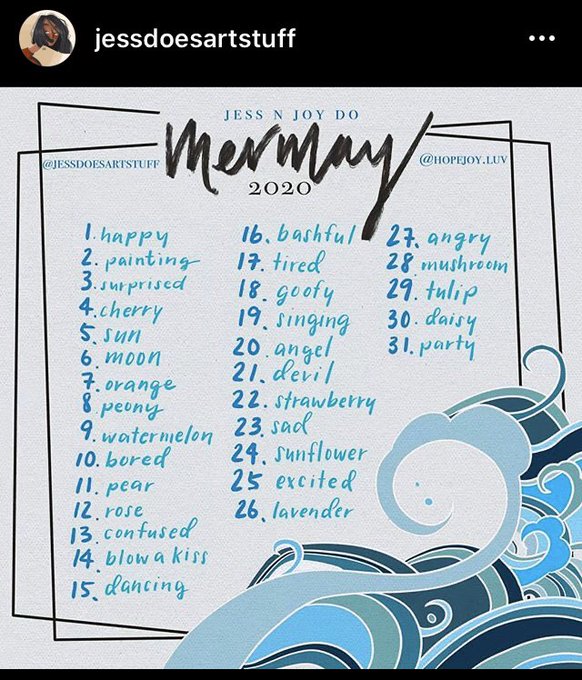 jessdoesartstuff
JESS N JOY DO
@JESSDOESARTSTUFF
mermay
@HOPEJOY.LUV
2020
1. happy
2. painting
3. surprised
4. cherry
5. sun
6. moon
7. orange
8. peony
9. watermelon
10. bored
11. pear
12. rose
13. confused
14. blow a kiss
15. dancing
16. bashful
17. tired
18. goofy
19. singing
20. angel
21. devil
22. strawberry
23. sad
24. sunflower
25 excited
26. lavender
27. angry
28 mushroom
29. tulip
30. daisy
31. party